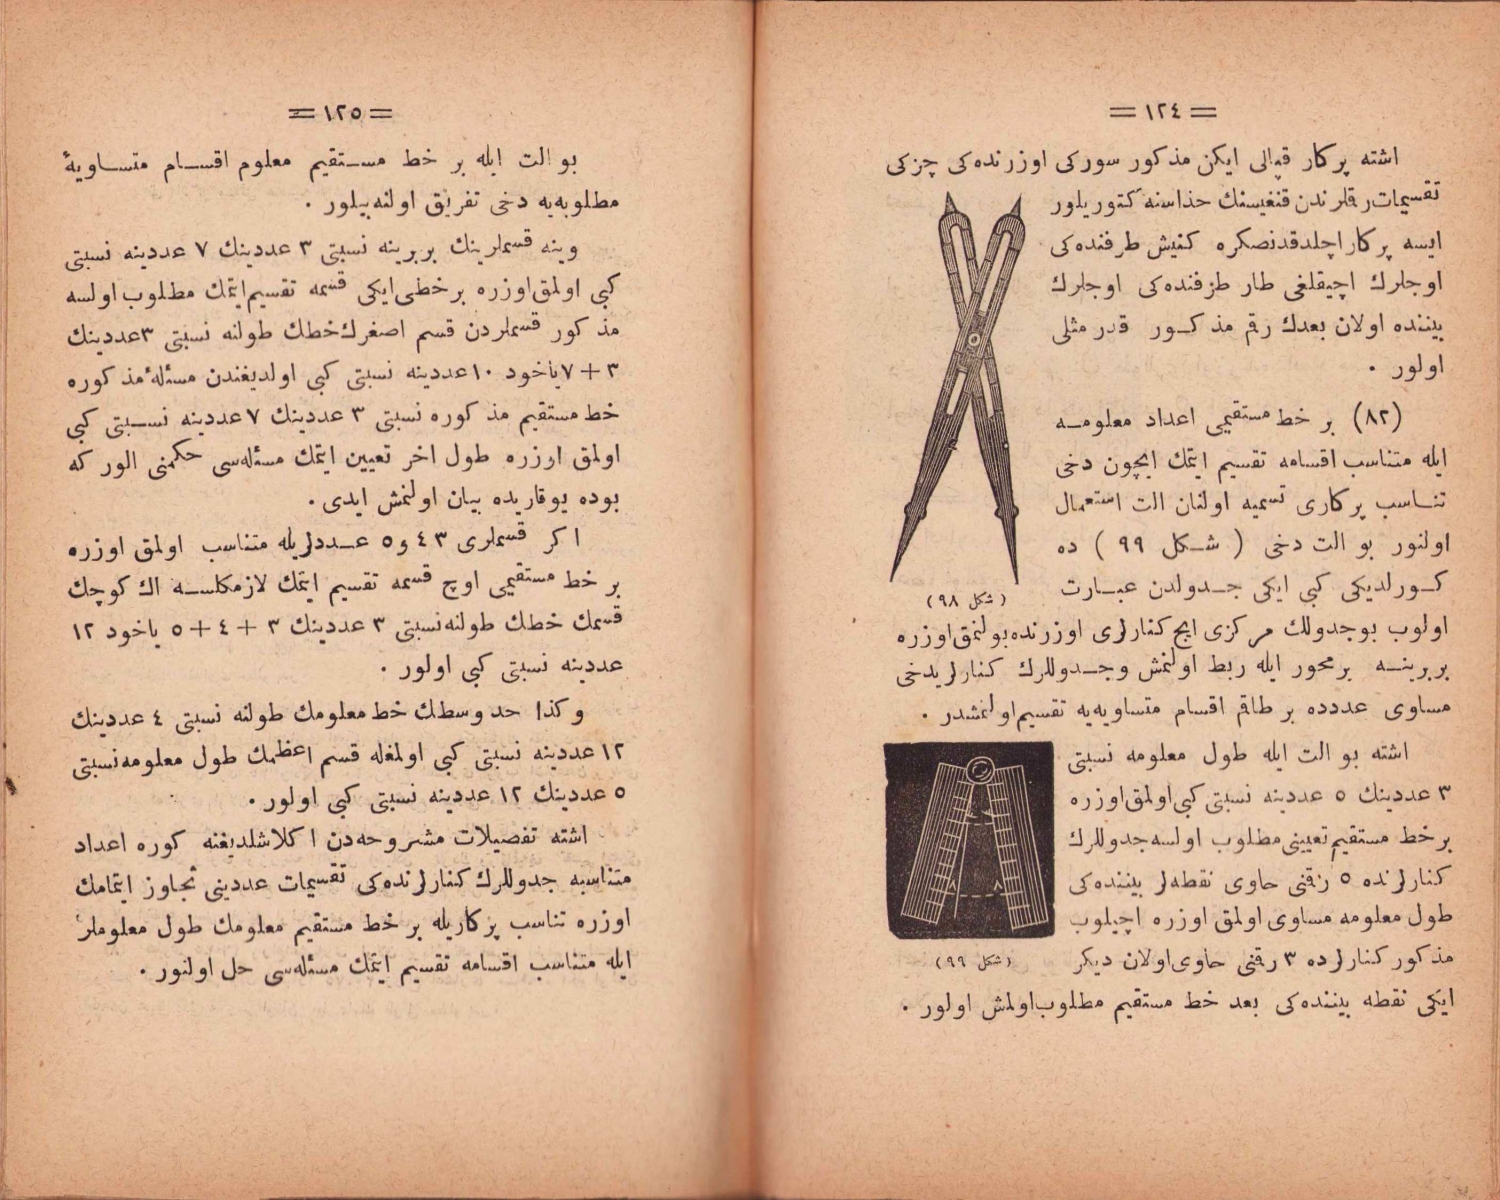 = ١٢٤ =
اشته پركار قپالی ایكن مذكور سوركی اوزرنده‌كی چزكی
تقسیمات رقلرندن قنغیسنك حذاسنه كتوریلور
ایسه پركار اچلدقدنصكره كنیش طرفنده‌كی
اوجلرك اچیقلغی طار طرفنده‌كی اوجلرك
بیننده اولان بعدك رقم مذكور قدر مثلی
اولور .
(٨٢) بر خط مستقیمی اعداد معلومه
ایله متناسب اقسامه تقسیم ایتمك ایچون دخی
تناسب پركاری تسمیه اولنان الت استعمال
اولنور بو الت دخی ( شكل ٩٩ ) ده
كورلدیكی كبی ایكی جدولدن عبارت
(شكل ٩٨)
اولوب بوجدوللك مركزی ایچ كنارلری اوزرنده بولنمق اوزره
بربرینه برمحور ایله ربط اولنمش وجدوللرك كنارلریدخی
مساوی عددده بر طاقم اقسام متساویه‌یه تقسیم اولنمشدر .
اشته بو الت ایله طول معلومه نسبتی
٣ عددینك ٥ عددینه نسبتی كبی اولمق اوزره
برخط مستقیم تعیینی مطلوب اولسه جدوللرك
كنارلرنده ٥ رقنی حاوی نقطه‌لر بیننده‌كی
طول معلومه مساوی اولمق اوزره اچیلوب
مذكور كنارلرده ٣ رقنی حاوی اولان دیكر
(شكل ٩٩)
ایكی نقطه بیننده‌كی بعد خط مستقیم مطلوب اولمش اولور .
= ١٢٥ =
بو الت ایله بر خط مستقیم معلوم اقسام متساویهٔ
مطلوبه‌یه دخی تفریق اولنه‌بیلور .
وینه قسملرینك بربرینه نسبتی ٣ عددینك ٧ عددینه نسبتی
كبی اولمق اوزره برخطی ایكی قسمه تقسیم ایتمك مطلوب اولسه
مذكور قسملردن قسم اصغرك خطك طولنه نسبتی ٣ عددینك
٣ + ٧ یاخود ١٠ عددینه نسبتی كبی اولدیغندن مسئلهٔ مذكوره
خط مستقیم مذكوره نسبتی ٣ عددینك ٧ عددینه نسبتی كبی
اولمق اوزره طول اخر تعیین ایتمك مسئله‌سی حكمنی الور كه
بوده یوقاریده بیان اولنمش ایدی .
اكر قسملری ٣ ٤ و ٥ عددلریله متناسب اولمق اوزره
بر خط مستقیمی اوچ قسمه تقسیم ایتمك لازمكلسه اك كوچك
قسمك خطك طولنه نسبتی ٣ عددینك ٣ + ٤ + ٥ یاخود ١٢
عددینه نسبتی كبی اولور .
وكذا حد وسطك خط معلومك طولنه نسبتی ٤ عددینك
١٢ عددینه نسبتی كبی اولمغله قسم اعظمك طول معلومه نسبتی
٥ عددینك ١٢ عددینه نسبتی كبی اولور .
اشته تفصیلات مشروحه‌دن اكلاشلدیغنه كوره اعداد
متناسبه جدوللرك كنارلرنده‌كی تقسیمات عددینی تجاوز ایتمامك
اوزره تناسب پركاریله بر خط مستقیم معلومك طول معلوملر
ایله متناسب اقسامه تقسیم ایتمك مسئله‌سی حل اولنور .